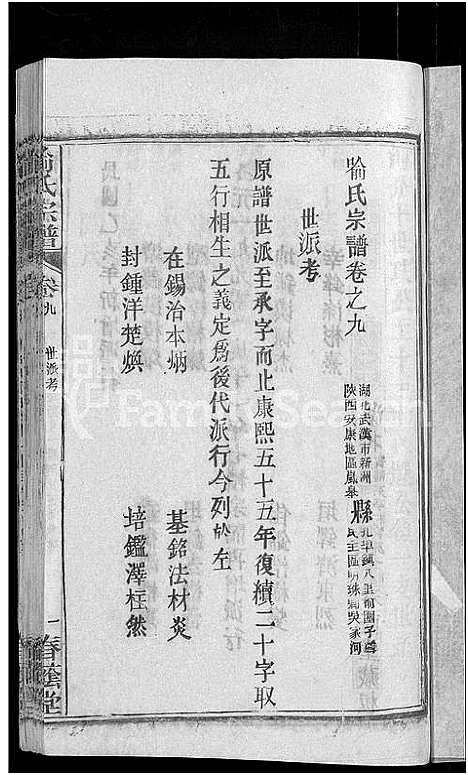 喻氏宗譜卷之九
湖北武漢市新洲
陝西安康地區嵐皋
縣
孔埠鎮八里喻園子
民主區明珠吳家河
世派考
原譜世派至承字而止康熙五十五年復續二十字取
五行相生之義定爲後代派行今列於左
在錫治本炳 基銘法材炎
封鍾洋楚煥 培鑑澤枉然
喻氏宗譜
卷九
世派考
一
春蔭堂
FamilySearch